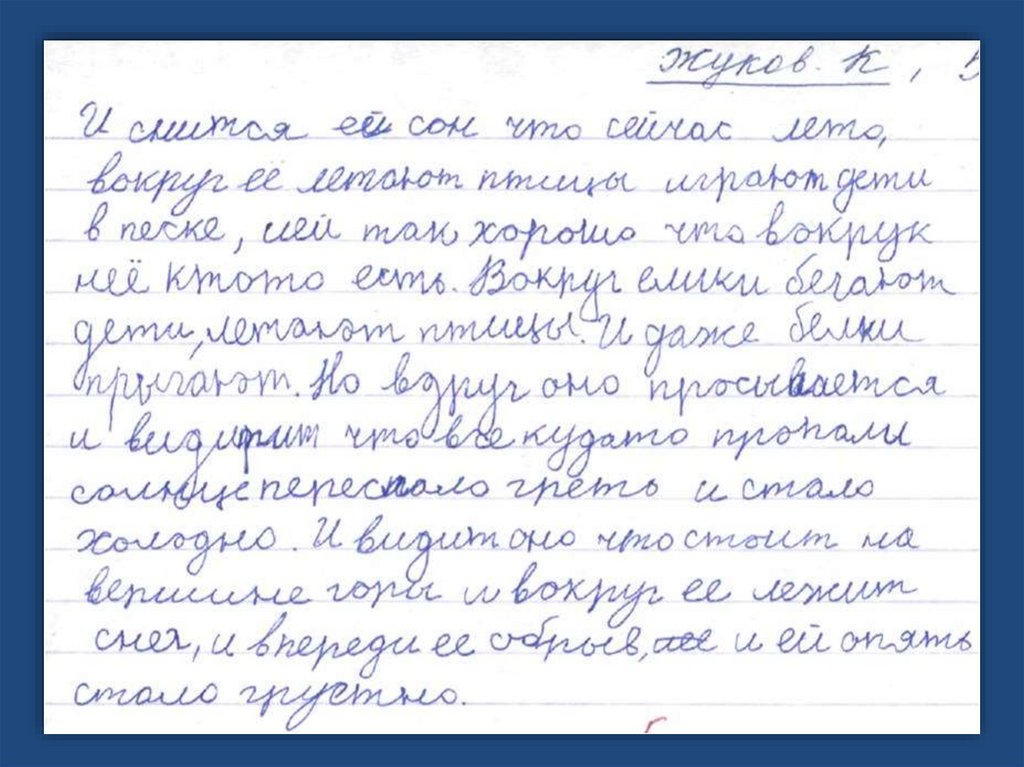 Жуков. К, 5
И снится ей сон что сейчас лето,
вокруг её летают птицы играют дети
в песке, ией так хорошо что вокрук
неё ктото есть. Вокруг елики бегают
дети, летают птицы. И даже белки
прыгают. Но вдруг оно просывается
и видит что все кудато пропали
солнце перестало греть и стало
холодно. И видит оно что стоит на
вершине горы и вокруг ее лежит
снег, и впереди ее обрыв, и ей опять
стало грустно.